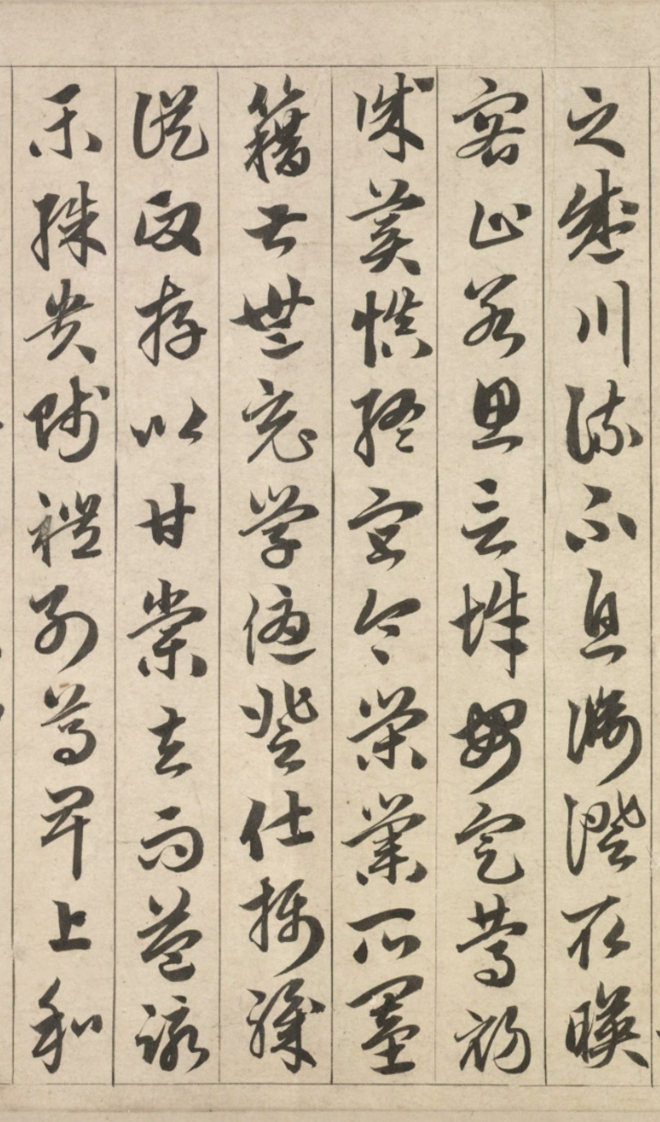 之盛川流不息淵澄取暎
容止若思言辭安定篤初
誠美慎終宜令榮業所基
籍甚無竟學優登仕攝職
從政存以甘棠去而益詠
樂殊貴賤禮別尊卑上和